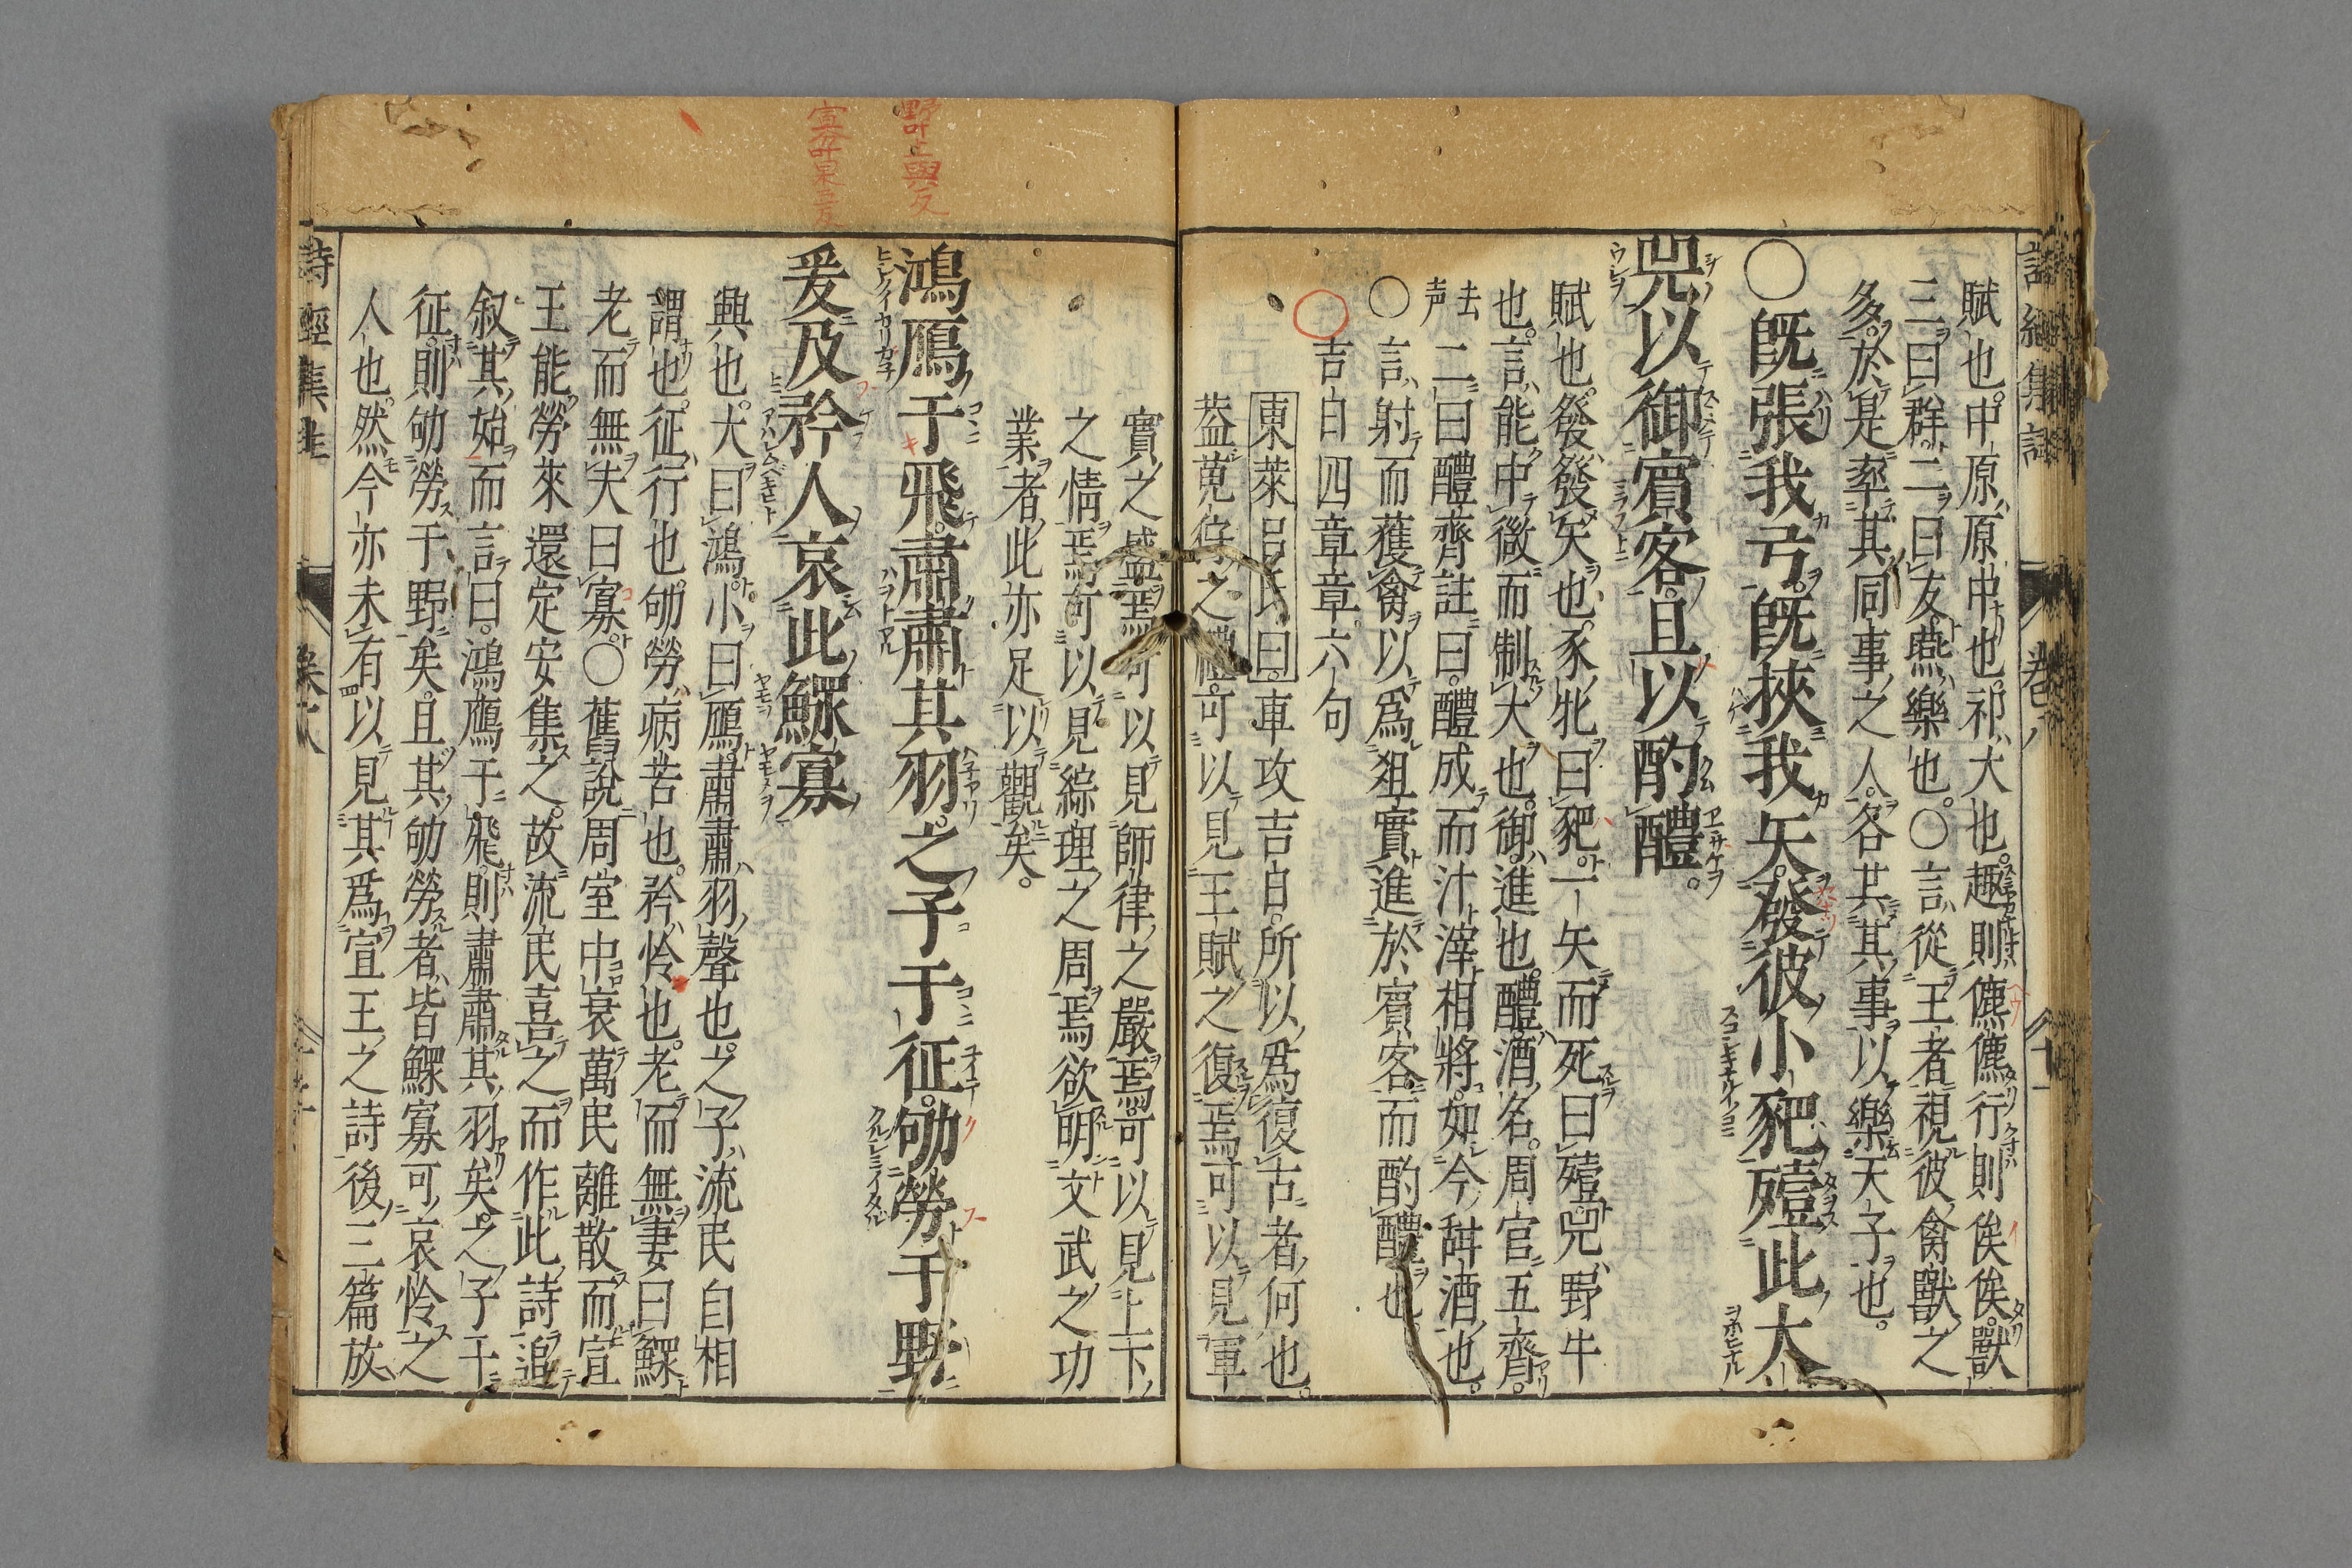 賦也。中原、原中也。祁、大也。趣則儦儦行則俟俟。獸
三曰群二曰友燕、樂也。○言、從王者視彼禽獸之
多。於是率其同事之人。各共其事以樂天子也。
○既張我弓。既挾我矢。發彼小豝。殪此大
兕以御賓客。且以酌醴。
賦也。發、發矢也。豕牝曰豝。一矢而死曰殪。兕、野牛
也。言、能中微而制大也。御、進也。醴酒名。周官五齊。
二曰醴齊註曰。醴成而汁滓相將。如今甜酒也。
去声
○言、射而獲禽以爲俎實進於賓客而酌醴也。
○吉日四章章六句
東萊呂氏曰。車攻吉日。所以爲復古者何也。
蓋蒐狩之禮可以見王賦之復焉。可以見軍
實之盛焉可以見師律之嚴焉。可以見上下
之情焉。可以見綜理之周焉。欲明文武之功
業者此亦足以觀矣。
野叶上與反
鴻鴈于飛。肅肅其羽。之子于征。劬勞于野。
爰及矜人哀此鰥寡
興也。大曰鴻。小曰鴈。肅肅、羽聲也。之子、流民自相
謂也。征、行也。劬勞、病苦也。矜、怜也。老而無妻曰鰥
老而無夫曰寡。○舊說周室中衰萬民離散。而宣
王能勞來還定安集之。故流民喜之而作此詩追
叙其始而言曰。鴻鴈于飛。則肅肅其羽矣。之子于
征則劬勞于野矣。且其劬勞者、皆鰥寡可哀怜之
人也。然今亦未有以見其爲宣王之詩後三篇放